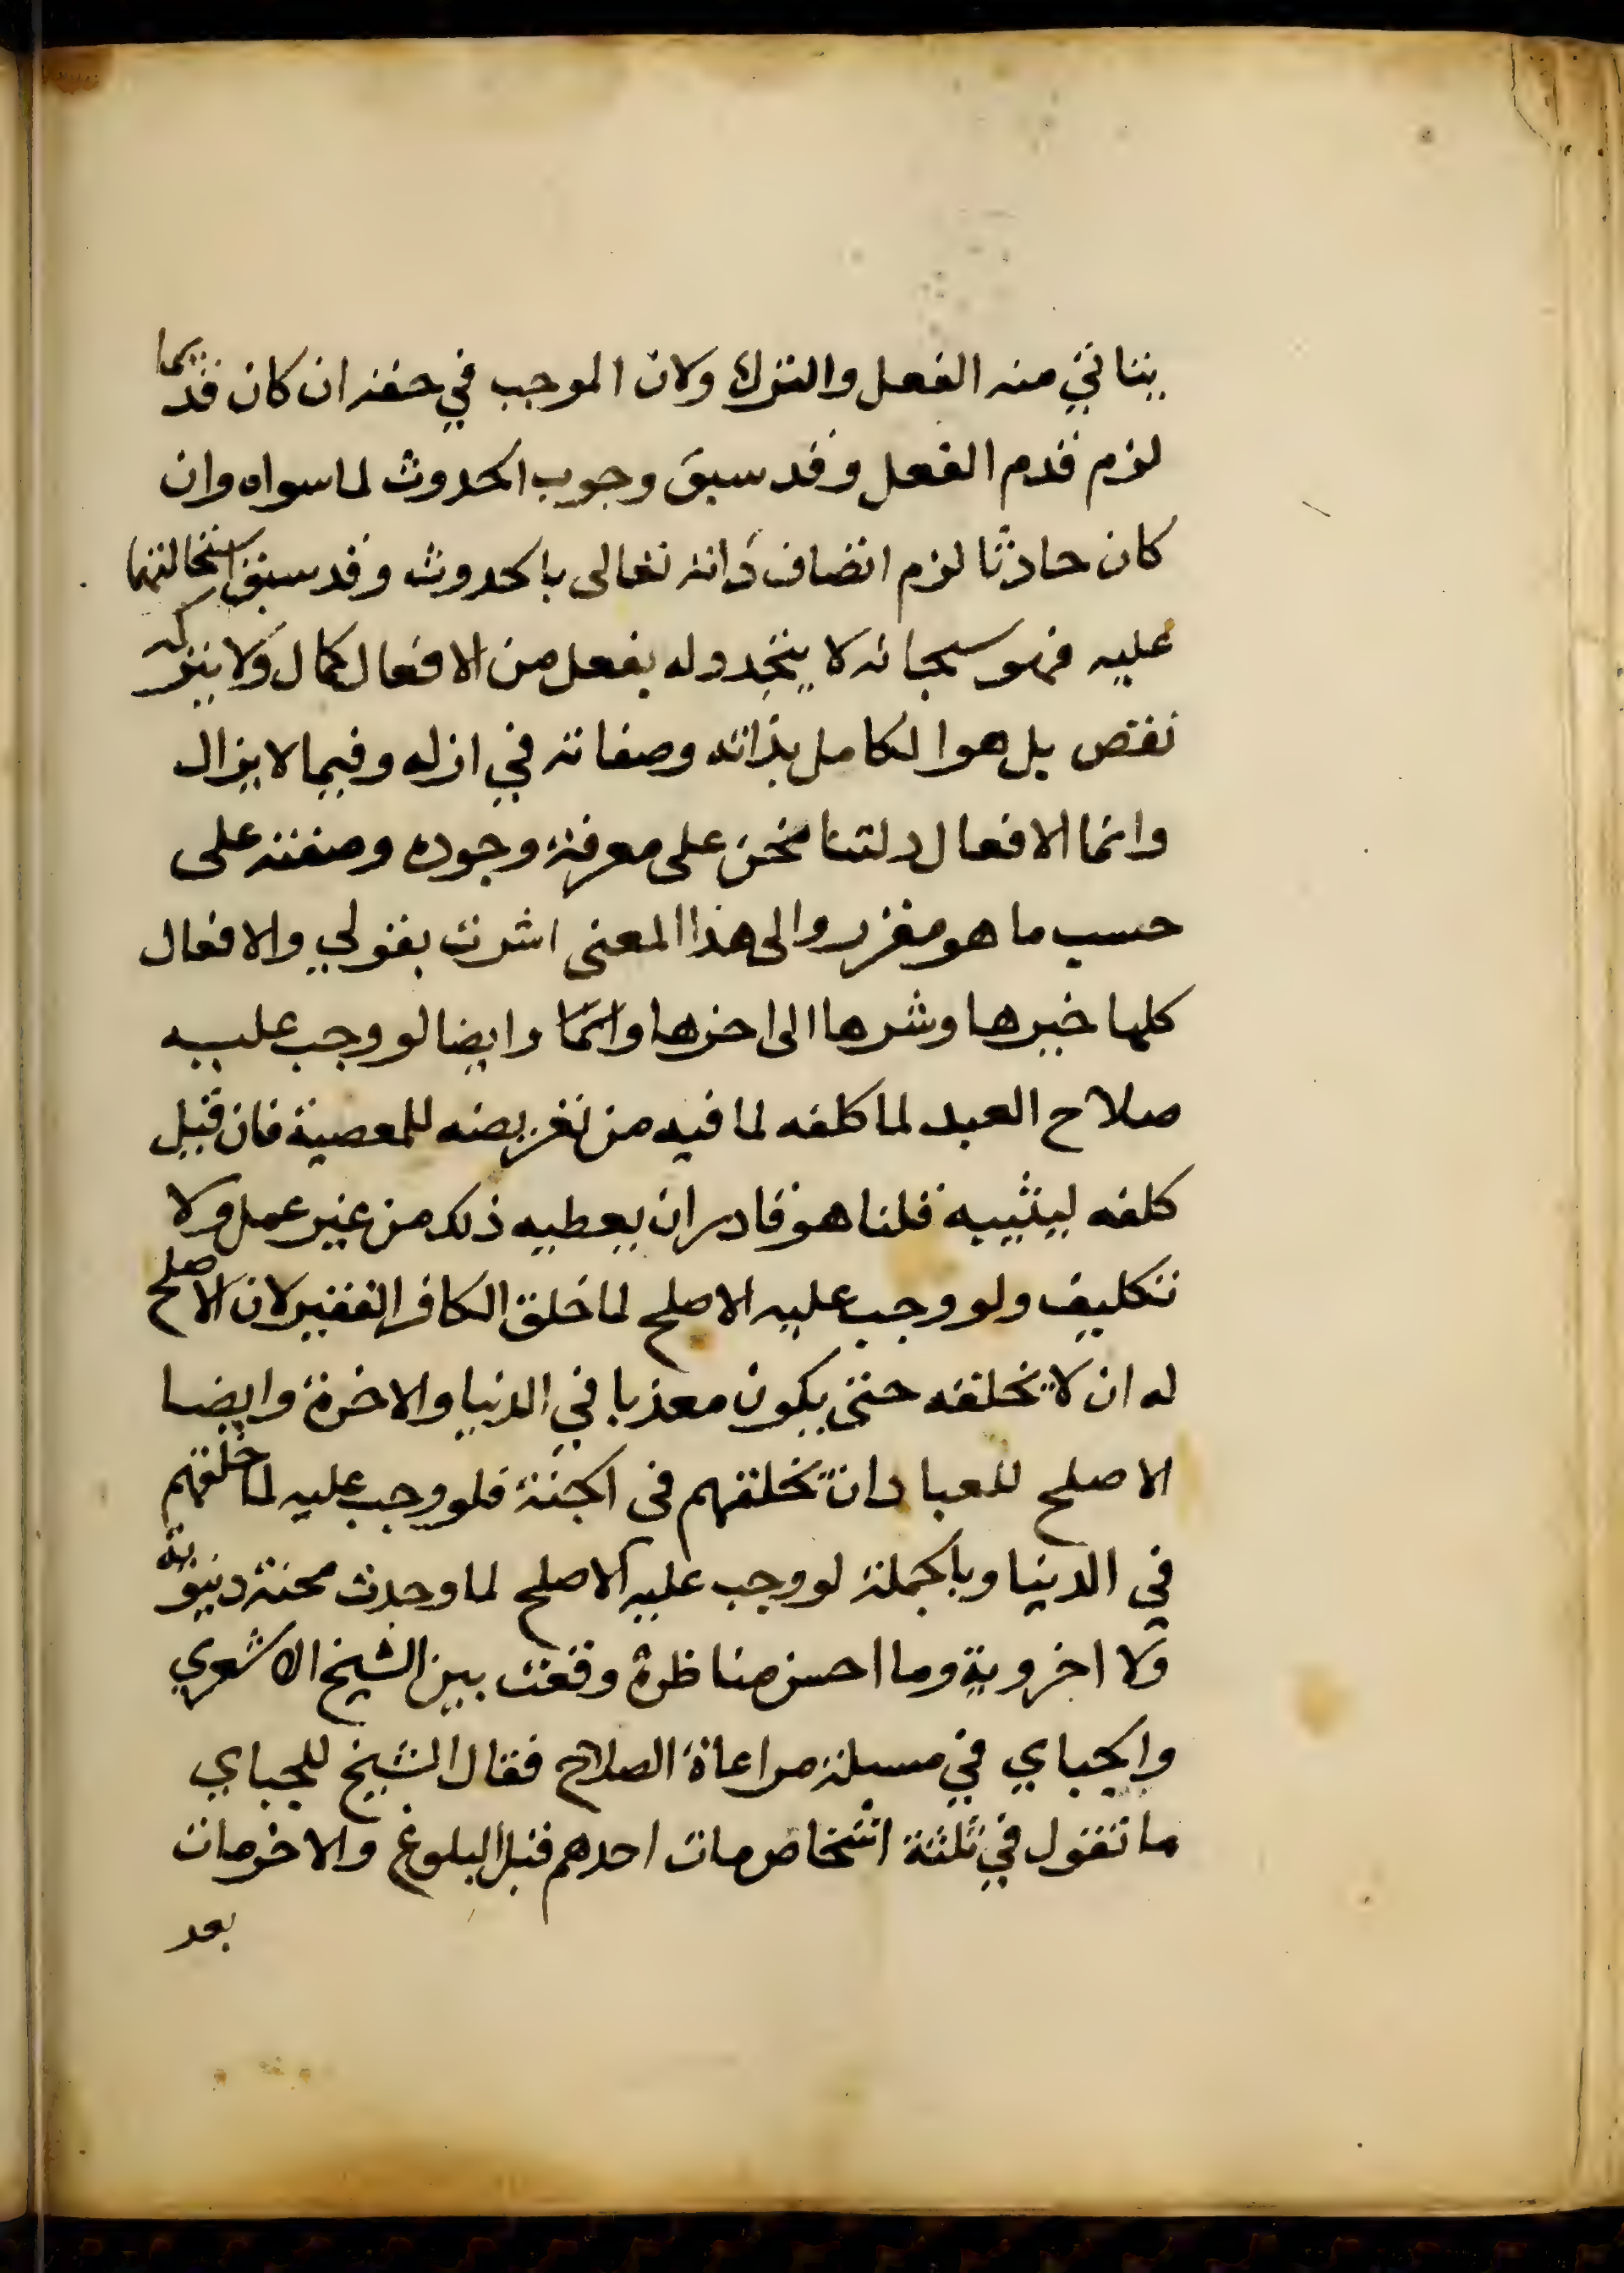 يتاتي منه الفعل والترك ولان الموجب في حقه ان كان قديما
لزم قدم الفعل وقد سبق وجوب الحدوث لما سواه وان
كان حادثا لزم اتصاف ذاته تعالى بالحدوث وقد سبق استحالتهما
عليه فهو سبحانه لا يتجدد له بفعل من الافعال كمال ولا بتركه
نقص بل هو الكامل بذاته وصفاته في ازله وفيما لا يزال
وانما الافعال دلتنا نحن على معرفة وجوده وصفته على
حسب ما هو مقرر والى هذا المعنى اشرت بقولي والافعال
كلها خيرها وشرها الى اخرها وانما وايضا لو وجب عليه
صلاح العبد لما كلفه لما فيه من تعريضه للمعصية فان قيل
كلفه ليثيبه قلنا هو قادر ان يعطيه ذلك من غير عمل ولا
تكليف ولو وجب عليه الاصلح لما خلق الكافر الفقير لان الاصلح
له ان لا يخلقه حتى يكون معذبا في الدنيا والاخرة وايضا
الاصلح للعباد ان يخلقهم في الجنة فلو وجب عليه لما خلقهم
في الدنيا وبالجملة لو وجب عليه الاصلح لما وجدت محنة دنيوية
ولا اخروية وما احسن مناظرة وقعت بين الشيخ الاشعري
والجباي في مسيلة مراعاة الصلاح فقال الشيخ للجباي
ما تقول في ثلثة اشخاص مات احدهم قبل البلوغ والاخر مات
بعد